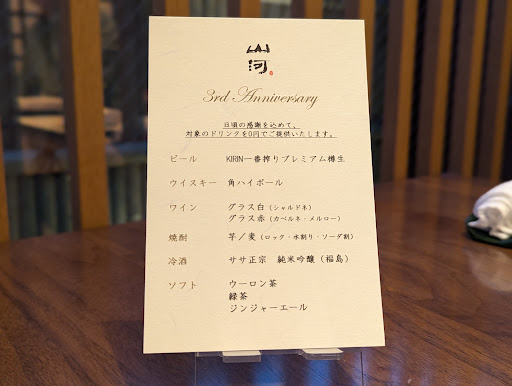 山河
3rd Anniversary
日頃の感謝を込めて、
対象のドリンクを0円でご提供いたします。
ビール KIRIN一番搾りプレミアム樽生
ウイスキー 角ハイボール
ワイン グラス白(シャルドネ)
グラス赤(カベルネ・メルロー)
焼酎 芋/麦(ロック・水割り・ソーダ割)
冷酒 ササ正宗 純米吟醸(福島)
ソフト ウーロン茶
緑茶
ジンジャーエール